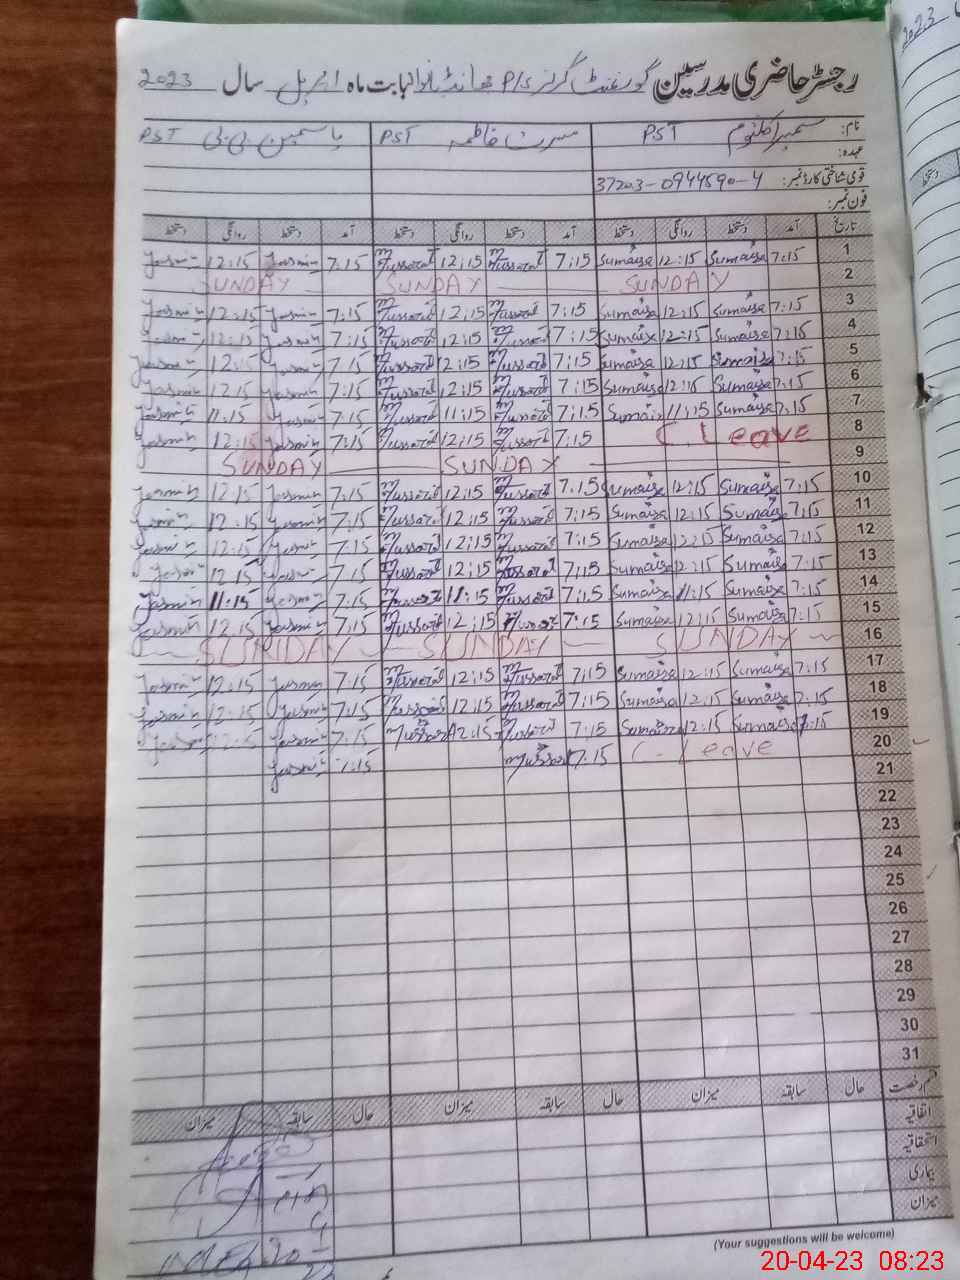 رجسٹر حاضری مدرسین گورنمنٹ گرلز P/S بابت ماہ اپریل سال 2023
نام: PST مسرت فاطمہ PST یاسمین بی بی PST
عہدہ:
قومی شناختی کارڈ نمبر: 37203-0944590-4
فون نمبر:
تاریخ آمد دستخط روانگی دستخط آمد دستخط روانگی دستخط آمد دستخط روانگی دستخط
1 7:15 Sumaisa 12:15 Sumaisa 7:15 Mussarat 12:15 Mussarat 7:15 Yasmin 12:15 Yasmin
2 SUNDAY SUNDAY SUNDAY
3 7:15 Sumaisa 12:15 Sumaisa 7:15 Mussarat 12:15 Mussarat 7:15 Yasmin 12:15 Yasmin
4 7:15 Sumaisa 12:15 Sumaisa 7:15 Mussarat 12:15 Mussarat 7:15 Yasmin 12:15 Yasmin
5 7:15 Sumaisa 12:15 Sumaisa 7:15 Mussarat 12:15 Mussarat 7:15 Yasmin 12:15 Yasmin
6 7:15 Sumaisa 12:15 Sumaisa 7:15 Mussarat 12:15 Mussarat 7:15 Yasmin 12:15 Yasmin
7 7:15 Sumaisa 11:15 Sumaisa 7:15 Mussarat 11:15 Mussarat 7:15 Yasmin 11:15 Yasmin
8 C. Leave 7:15 Mussarat 12:15 Mussarat 7:15 Yasmin 12:15 Yasmin
9 SUNDAY SUNDAY
10 7:15 Sumaisa 12:15 Sumaisa 7:15 Mussarat 12:15 Mussarat 7:15 Yasmin 12:15 Yasmin
11 7:15 Sumaisa 12:15 Sumaisa 7:15 Mussarat 12:15 Mussarat 7:15 Yasmin 12:15 Yasmin
12 7:15 Sumaisa 12:15 Sumaisa 7:15 Mussarat 12:15 Mussarat 7:15 Yasmin 12:15 Yasmin
13 7:15 Sumaisa 12:15 Sumaisa 7:15 Mussarat 12:15 Mussarat 7:15 Yasmin 12:15 Yasmin
14 7:15 Sumaisa 11:15 Sumaisa 7:15 Mussarat 11:15 Mussarat 7:15 Yasmin 11:15 Yasmin
15 7:15 Sumaisa 12:15 Sumaisa 7:15 Mussarat 12:15 Mussarat 7:15 Yasmin 12:15 Yasmin
16 SUNDAY SUNDAY SUNDAY
17 7:15 Sumaisa 12:15 Sumaisa 7:15 Mussarat 12:15 Mussarat 7:15 Yasmin 12:15 Yasmin
18 7:15 Sumaisa 12:15 Sumaisa 7:15 Mussarat 12:15 Mussarat 7:15 Yasmin 12:15 Yasmin
19 7:15 Sumaisa 12:15 Sumaisa 7:15 Mussarat 12:15 Mussarat 7:15 Yasmin 12:15 Yasmin
20 C. Leave 7:15 Mussarat 7:15 Yasmin
21
22
23
24
25
26
27
28
29
30
31
قسم رخصت حال سابقہ میزان حال سابقہ میزان حال سابقہ میزان
اتفاقیہ
استحقاقیہ
بیماری
میزان
(Your suggestions will be welcome)
20-04-23 08:23
2023
دستخط